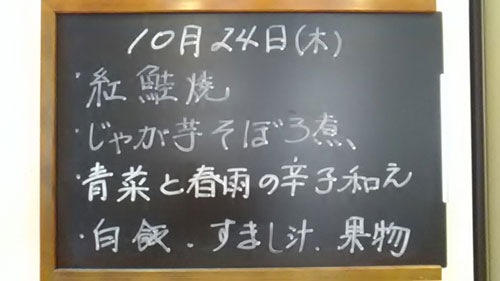 10月24日(木)
・紅鮭焼
・じゃが芋そぼろ煮、
・青菜と春雨の辛子和え
・白飯.すまし汁.果物